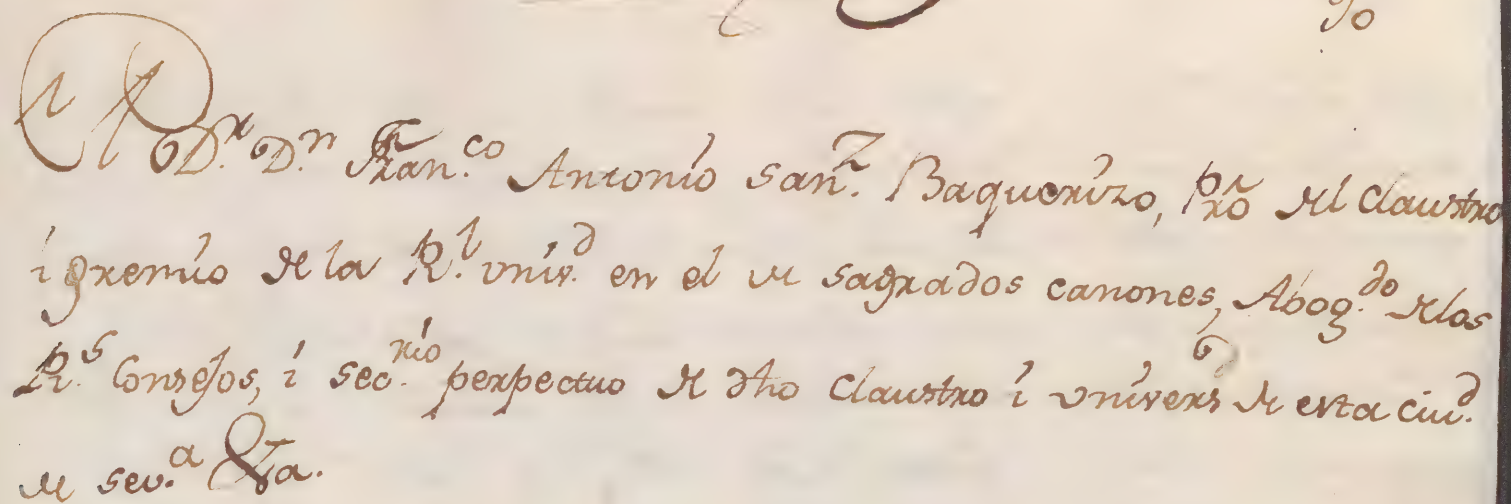 D.r D.n Fran.co Antonio San.z Baquerizo, Pro del Claustro
i gremio de la R.l univ.d en el de sagrados canones, Abog.do delos
R.s Consejos, i sec.rio perpectuo de dho Claustro i univers.d de esta ciu.d
de sev.a &a.